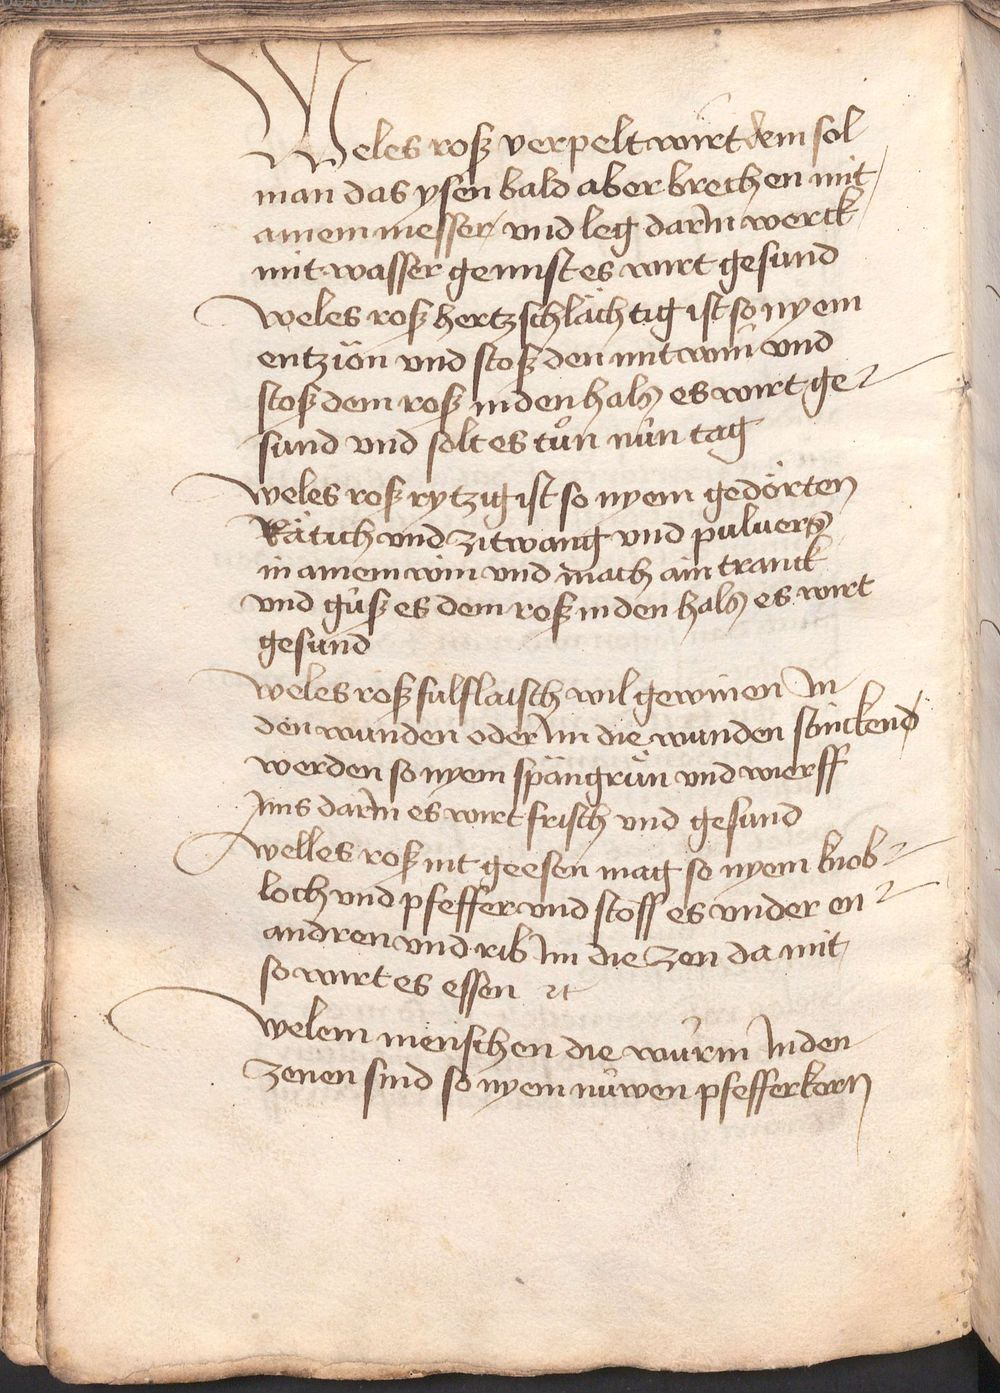 Weles roß verpelt wirt dem sol
man das ysen bald aber brechen mit
ainem messer vnd leg darin werck
mit wasser genust es wirt gesund
weles roß hertzschlächtig ist so nyem
entzion vnd stoß den mit win vnd
stoß dem roß in den halß es wirt ge
sund vnd solt es tůn nün tag
weles roß rytzig ist so nyem gedörten
Rätich vnd zitwang vnd puluers
in ainem win vnd mach ain tranck
vnd güß es dem roß in den halß es wirt
gesund
weles roß fulflaisch wil gewinen In
den wunden oder Im die wunden stinckend
werden so nyem spängrün vnd wierff
Ims darin es wirt frisch vnd gesund
welles roß nit geesen mag so nyem knob
loch vnd pfeffer vnd stoss es vnder en
andren vnd rib Im die zen da mit
so wirt es essen
welem menschen die würm In den
zenen sind so nyem nüwen pfefferkern